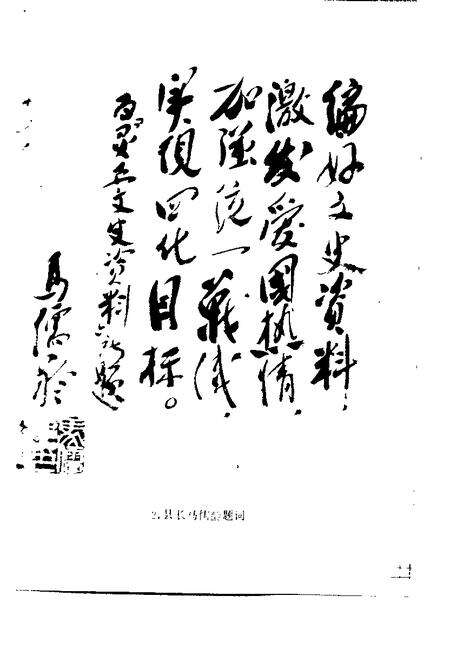 编好文史資料,
激发爱國热情,
加强统一战线,
实现四化目标。
为灵丘文史资料题
馬儒
2.县长马儒 题词